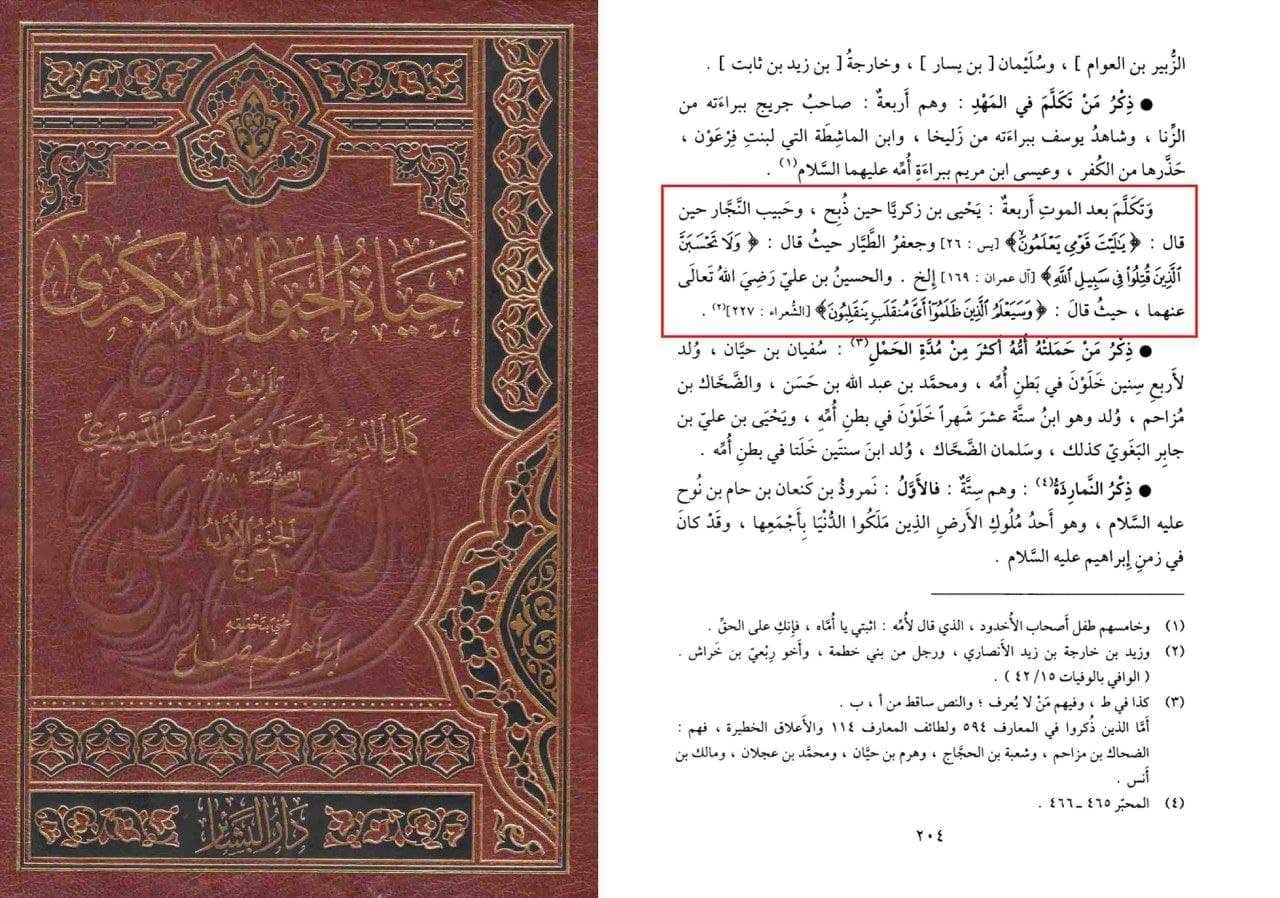 حياة الحيوان الكبرى
تأليف
كمال الدين محمد بن موسى الدميري
المتوفى سنة ٨٠٨ هـ
الجزء الأول
أ - ج
عني بتحقيقه
إبراهيم صالح
دار البشائر
الزُّبير بن العوام ] ، وسُلَيْمان [ بن يسار ] ، وخارجةُ [ بن زيد بن ثابت ] .
● ذِكْرُ مَنْ تَكَلَّمَ في المَهْدِ : وهم أَربعةٌ : صاحبُ جريج ببراءَته من
الزِّنا ، وشاهدُ يوسف ببراءَته من زَليخا ، وابن الماشِطَة التي لبنتِ فِرْعَوْن ،
حَذَّرها من الكُفر ، وعيسى ابن مريم ببراءَةِ أُمِّه عليهما السَّلام(١) .
وَتَكَلَّمَ بعد الموتِ أَربعةٌ : يَحْيى بن زكريَّا حين ذُبِح ، وحَبيب النَّجار حين
قال : ﴿ يَٰلَيْتَ قَوْمِي يَعْلَمُونَ ﴾ [يس : ٢٦] وجعفرُ الطَّيَّار حيثُ قال : ﴿ وَلَا تَحْسَبَنَّ
ٱلَّذِينَ قُتِلُوا۟ فِي سَبِيلِ ٱللَّهِ ﴾ [آل عمران : ١٦٩] إلخ . والحسينُ بن عليّ رَضِيَ اللهُ تَعالَى
عنهما ، حيثُ قالَ : ﴿ وَسَيَعْلَمُ ٱلَّذِينَ ظَلَمُوٓا۟ أَىَّ مُنقَلَبٍ يَنقَلِبُونَ ﴾ [الشُّعراء : ٢٢٧](٢) .
● ذِكْرُ مَنْ حَمَلَتْهُ أُمُّهُ أَكثرَ مِنْ مُدَّةِ الحَمْلِ(٣) : سُفيان بن حيَّان ، وُلد
لأَربعِ سِنين خَلَوْنَ في بَطنِ أُمِّه ، ومحمَّد بن عبد الله بن حَسَن ، والضَّحَّاك بن
مُزاحم ، وُلد وهو ابنُ ستَّة عشرَ شَهراً خَلَوْنَ في بطنِ أُمِّهِ ، ويَحْيَى بن عليّ بن
جابِر البَغَويّ كذلك ، وسَلمان الضَّحَّاك ، وُلد ابنَ سنتَين خَلَتا في بطنِ أُمِّه .
● ذِكْرُ النَّمارِدَةُ(٤) : وهم سِتَّةٌ : فالأَوَّلُ : نَمروذُ بن كَنعان بن حام بن نُوح
عليه السَّلام ، وهو أَحدُ مُلُوكِ الأَرضِ الذِين مَلَكُوا الدُّنْيَا بِأَجْمَعِها ، وقَدْ كانَ
في زمنِ إِبراهيم عليه السَّلام .
(١) وخامسهم طفل أَصحاب الأُخدود ، الذي قال لأُمِّه : اثبتي يا أُمَّاه ، فإِنكِ على الحقِّ .
(٢) وزيد بن خارجة بن زيد الأَنصاري ، ورجل من بني خطمة ، وأَخو رِبْعيّ بن خَراش .
( الوافي بالوفيات ١٥/ ٤٢ ) .
(٣) كذا في ط ، وفيهم مَنْ لا يُعرف ؛ والنص ساقط من أ ، ب .
أَمَّا الذين ذُكروا في المعارف ٥٩٤ ولطائف المعارف ١١٤ والأَعلاق الخطيرة ، فهم :
الضحاك بن مزاحم ، وشعبة بن الحجَّاج ، وهرم بن حيَّان ، ومحمَّد بن عجلان ، ومالك بن
أَنس .
(٤) المحبّر ٤٦٥ ــ ٤٦٦ .
٢٠٤